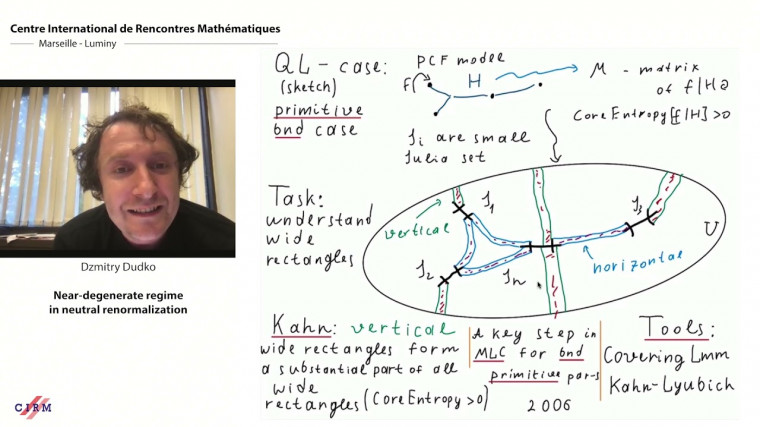 Centre International de Rencontres Mathématiques
Marseille - Luminy
Dzmitry Dudko
Near-degenerate regime
in neutral renormalization
CIRM
QL - case:
(sketch)
primitive
bnd case
PCF model
F
H
M - matrix
of f|H
CoreEntropy[f|H]>0
J_i are small
Julia set
Task:
understand
wide
rectangles
vertical
J_1
J_2
J_n
J_3
U
horizontal
Kahn: vertical
wide rectangles form
a substantial part of all
wide
rectangles (CoreEntropy>0)
A key step in
MLC for bnd
primitive par-s
2006
Tools:
Covering Lmm
Kahn-Lyubich